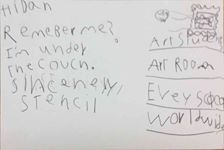 Hi Dan
Remeber me?
I'm under
the couch.
Sincenery,
Stencil
Art Stud
Art Room
Worldwide